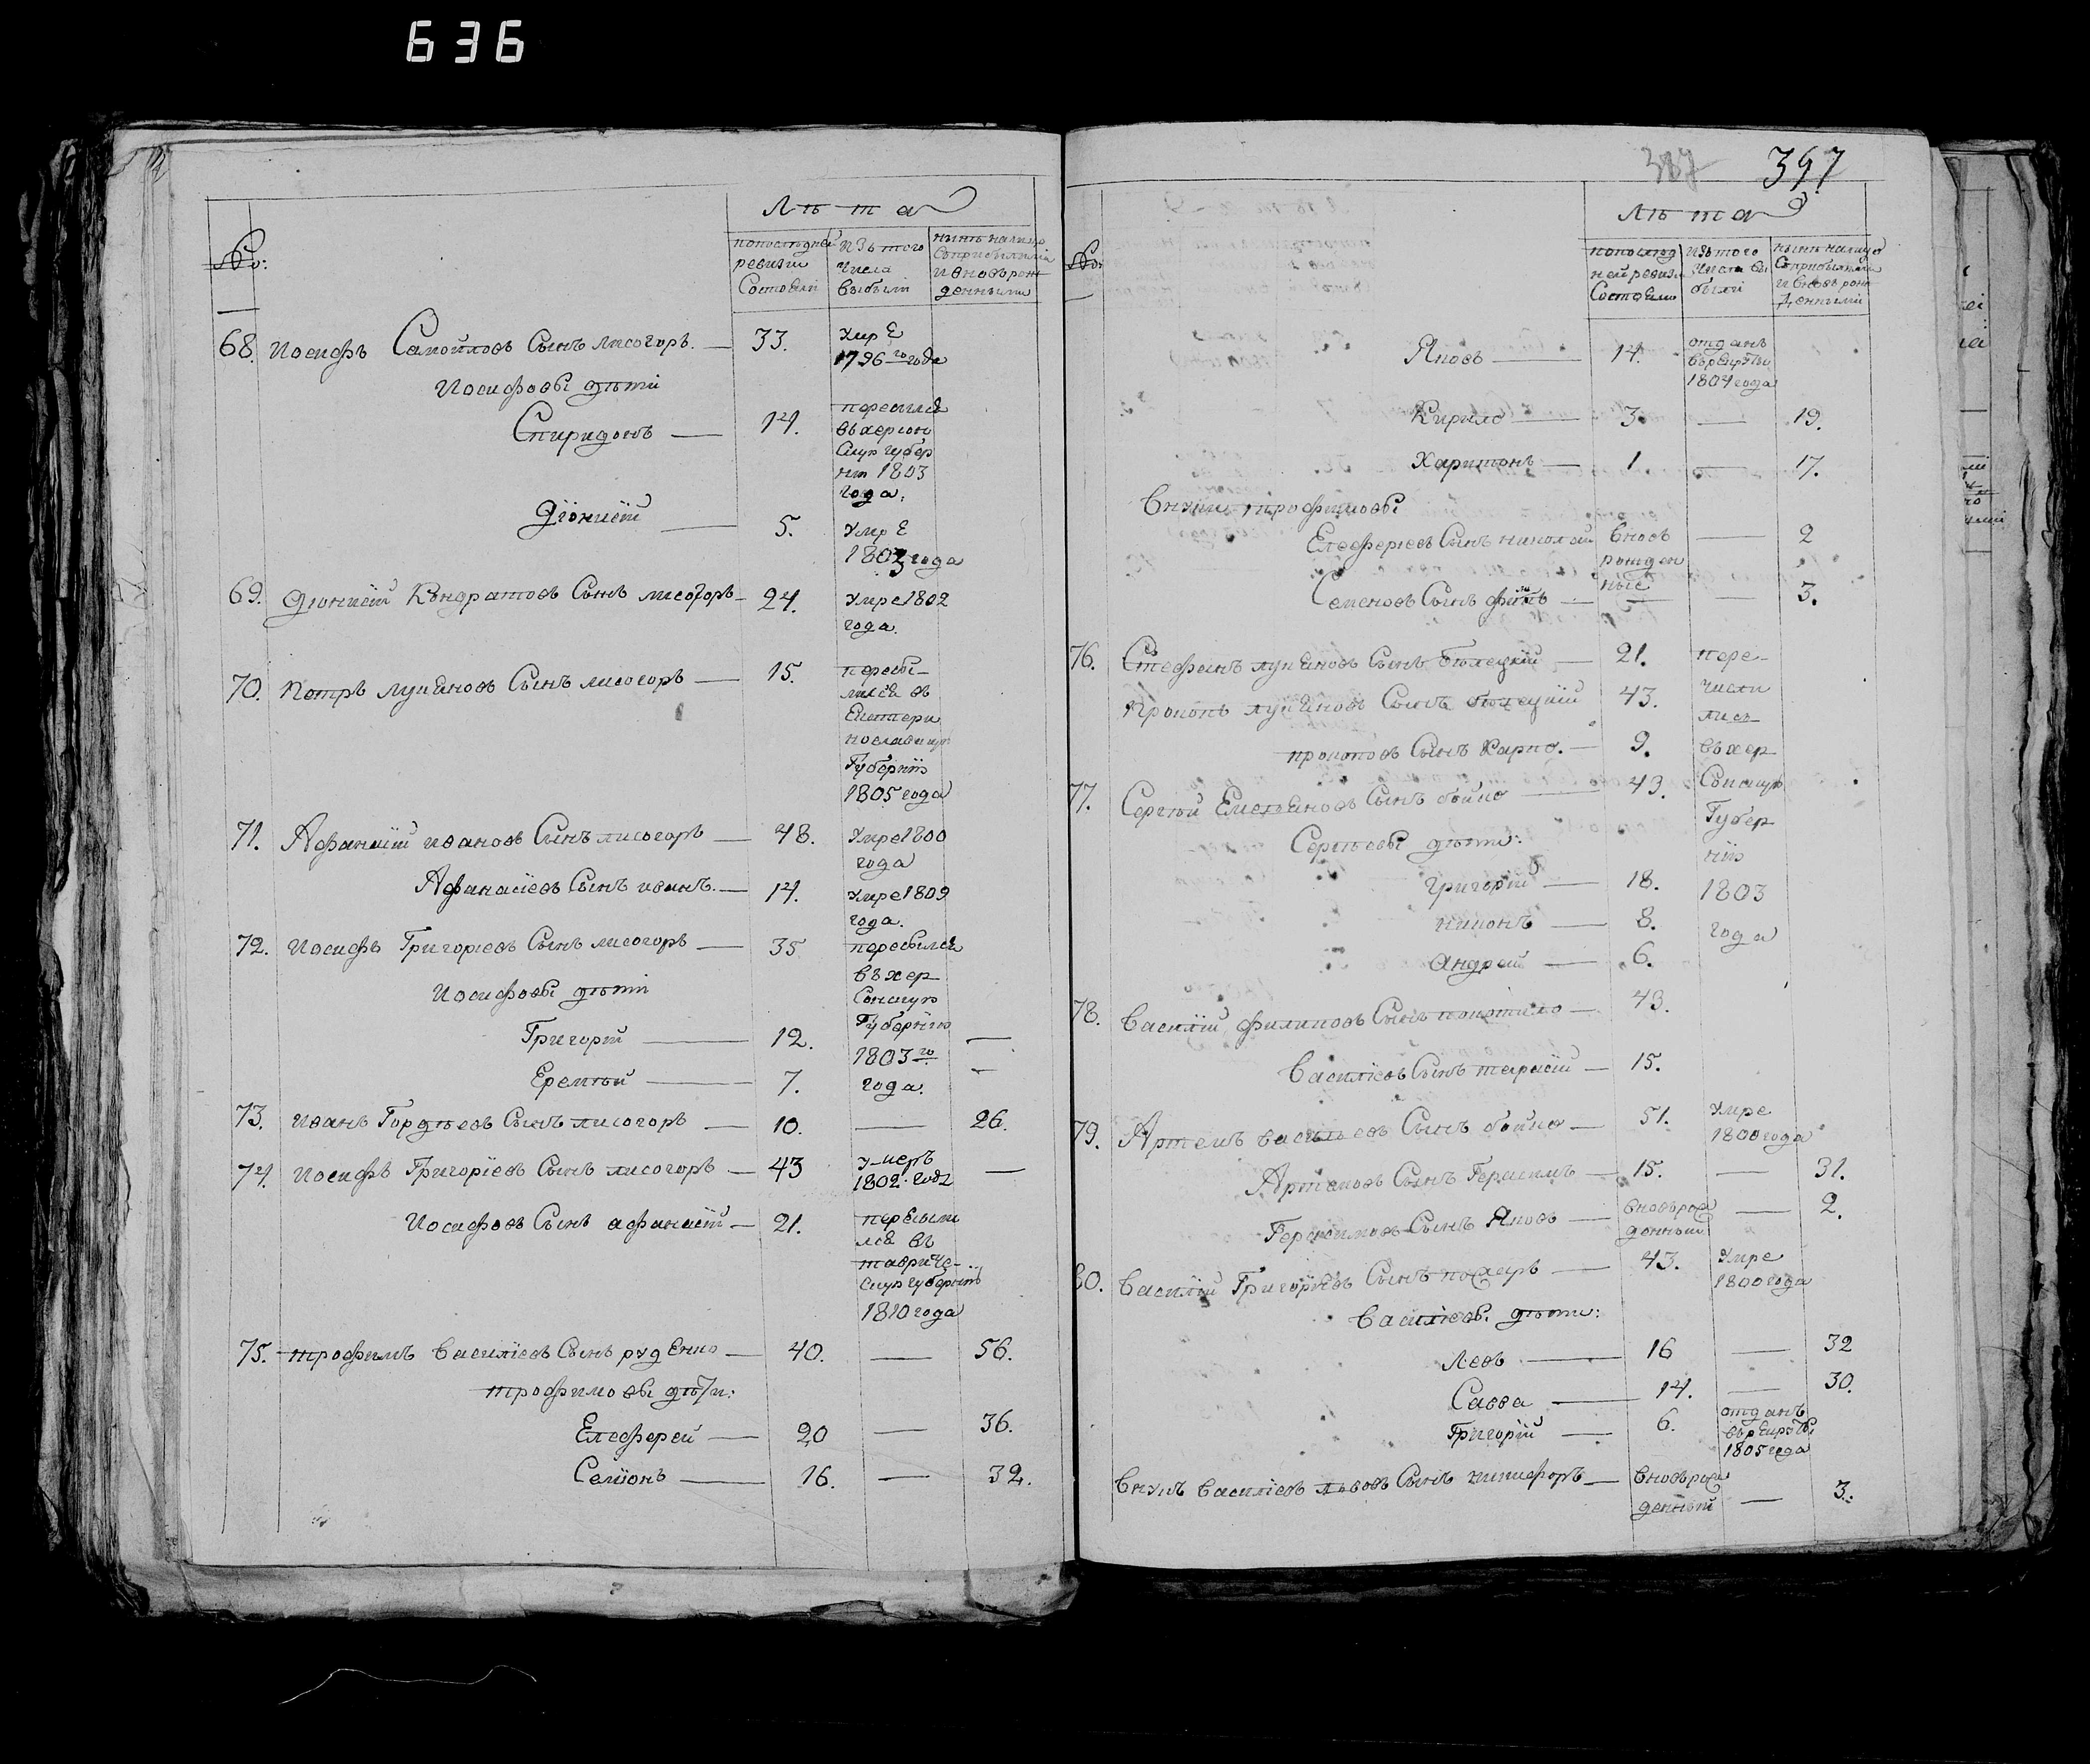 636
Лѣта
№:
попослѣдней
ревизiи
Состояли
изътого
числа
выбыли
нынѣ налицо
Съприбылыми
и вновьрож
денными
68. Иосифъ Самойловъ Сынъ лисогоръ. — 33. умрЕ
1796 го года
Иосифовы дѣти
Спиридонъ — 14. переѣхалъ
въхерсон
Скую губер
нiю 1803
года.
Дiонисiй — 5. умрЕ
1803 года
69. Дионисiй Кондратовъ Сынъ лисогоръ — 24. умре 1802
года.
70. Петръ лукяновъ Сынъ лисогоръ — 15. пересе-
лился въ
Екатери
нославскую
Губернiю
1805 года
71. Афанасiй ивановъ Сынъ лисогоръ — 48. умре 1800
года
Афанасiевъ Сынъ иванъ. — 14. умре 1809
года.
72. Иосифъ Григориевъ Сынъ лисогоръ — 35 переселился
въ хер
Сонскую
Губернiю
1803 го
года.
Иосифовы дѣти
Григорiй — 12. —
Еремѣй — 7. —
73. иванъ Гордѣевъ Сынъ лисогоръ — 10. — 26.
74. Иосифъ Григорiевъ Сынъ лисогоръ — 43 умеръ
1802 года —
Иосифовъ Сынъ афанасiй — 21. переселил
лся въ
тавриче-
скую губернiю
1810 года
75. трофимъ Василiевъ Сынъ рудЕнко — 40. — 56.
трофимовы дѣти:
Елеферей — 20 — 36.
Семiонъ — 16. — 32.
387 397
Лѣта
№:
попослѣд
ней ревизiи
Состояло
изътого
числа вы
были
нынѣ налицо
Съприбылыми
и вновь рож
денными
Яковъ — 14. отданъ
въ рекруты
1804 года
Кирило — 3. — 19.
Харитонъ — 1 — 17.
Внуки трофимовы
Елеферiевъ Сынъ николай вновь — 2
рожден
ные
Семеновъ Сынъ — — 3.
76. Стефанъ лукяновъ Сынъ бѣлецкiй — 21. пере-
числи
лись
въ хер
Сонскую
Губер
нiю
1803
года
Прокопъ лукяновъ Сынъ бѣлецкiй 43.
прокоповъ Сынъ Карпо. — 9.
77. Сергѣй Емельяновъ Сынъ бойко — 43.
Сергѣевы дѣти:
григорiй — 18.
никонъ — 8.
андрей — 6.
78. Василiй филиповъ Сынъ — 43.
Василiевъ Сынъ тарасiй — 15.
79. Артемъ васильевъ Сынъ бойко — 51. умре
1800 года
Артемовъ Сынъ Герасимъ — 15. — 31.
Герасимовъ Сынъ Яковъ — вновьрож
денный — 2.
80. Василiй Григорiевъ Сынъ — 43. умре
1800 года
Василiевы дѣти:
Левъ — 16 — 32
Савва — 14. — 30.
Григорiй — 6. отданъ
въ рекруты
1805 года
Внукъ Василiевъ львовъ Сынъ никифоръ — вновьрож
денный — 3.